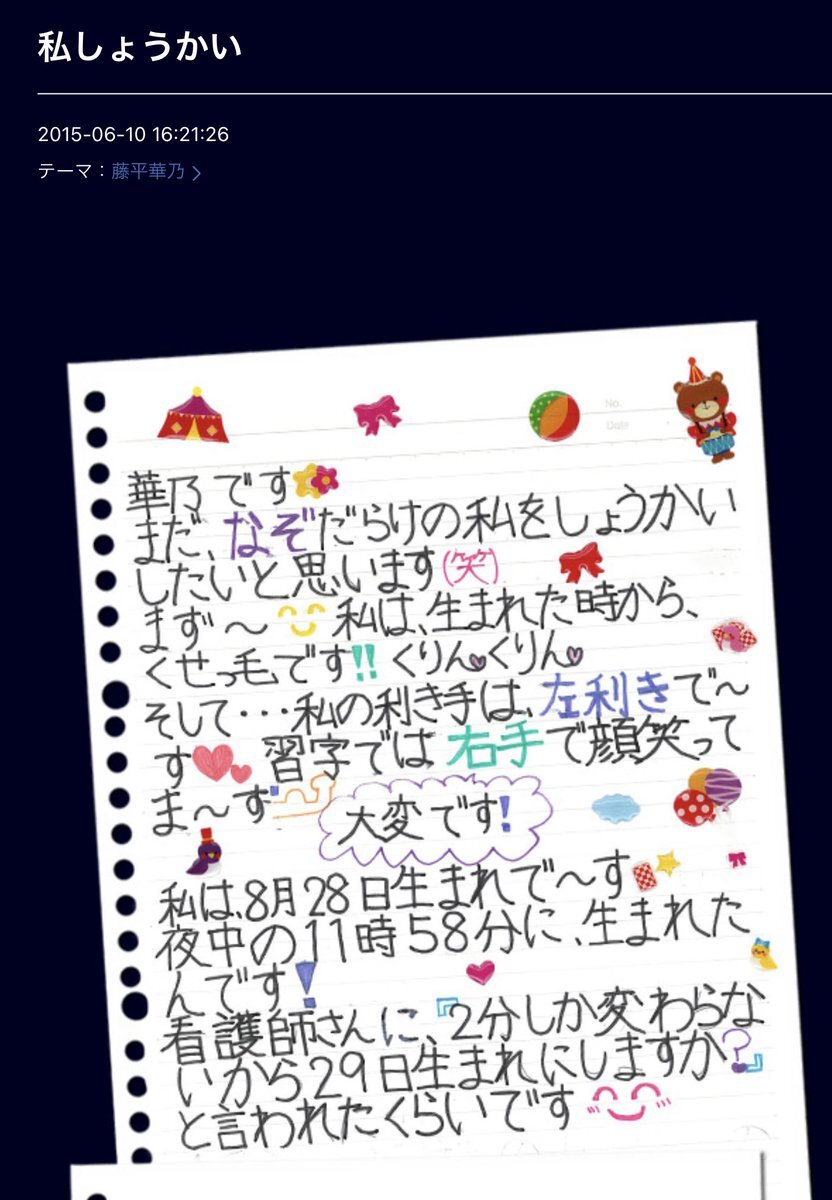 私しょうかい
2015-06-10 16:21:26
テーマ：藤平華乃 >
No.
Date
華乃です
まだ、なぞだらけの私をしょうかい
したいと思います(笑)
まず〜 私は、生まれた時から、
くせっ毛です!! くりん♥くりん♥
そして・・・私の利き手は、左利きで〜
す 習字では 右手で顔笑って
ま〜す
大変です!
私は、8月28日生まれで〜す
夜中の11時58分に、生まれた
んです!
看護師さんに、『2分しか変わらな
いから29日生まれにしますか?』
と言われたくらいです